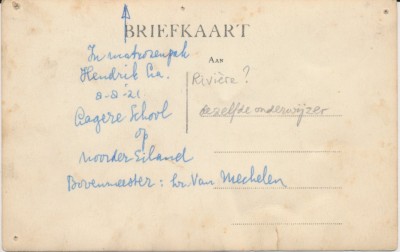 BRIEFKAART
AAN
In matrozenpak
Hendrik
8-2-'21
Lagere School
op
Noorder Eiland
Bovenmeester: Van Mechelen
Rivière?
dezelfde onderwijzer